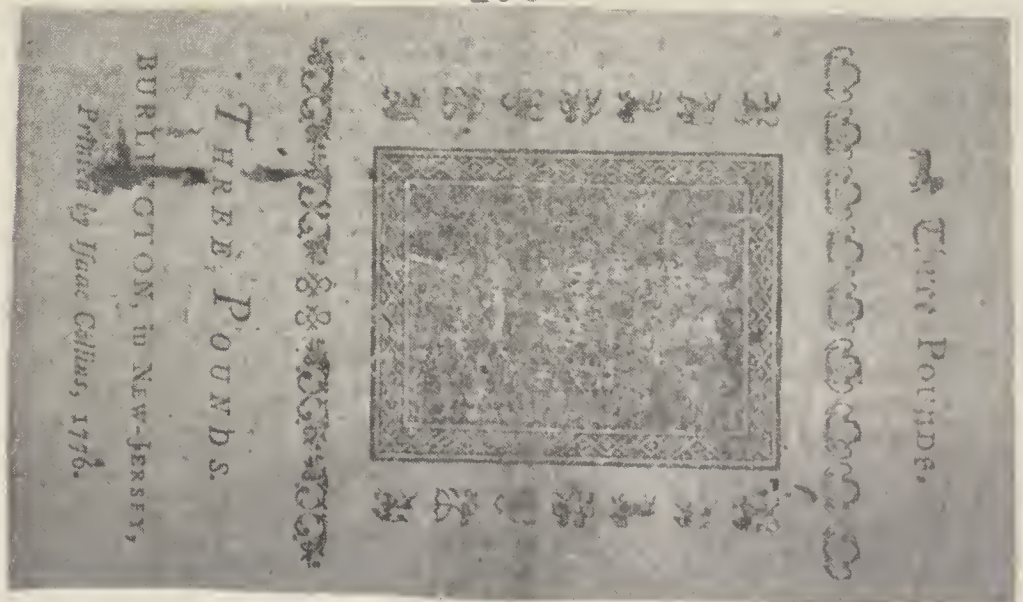 Three Pounds.
Three, Pounds.
BURLINGTON, in New-Jersey,
Printed by Iſaac Collins, 1776.